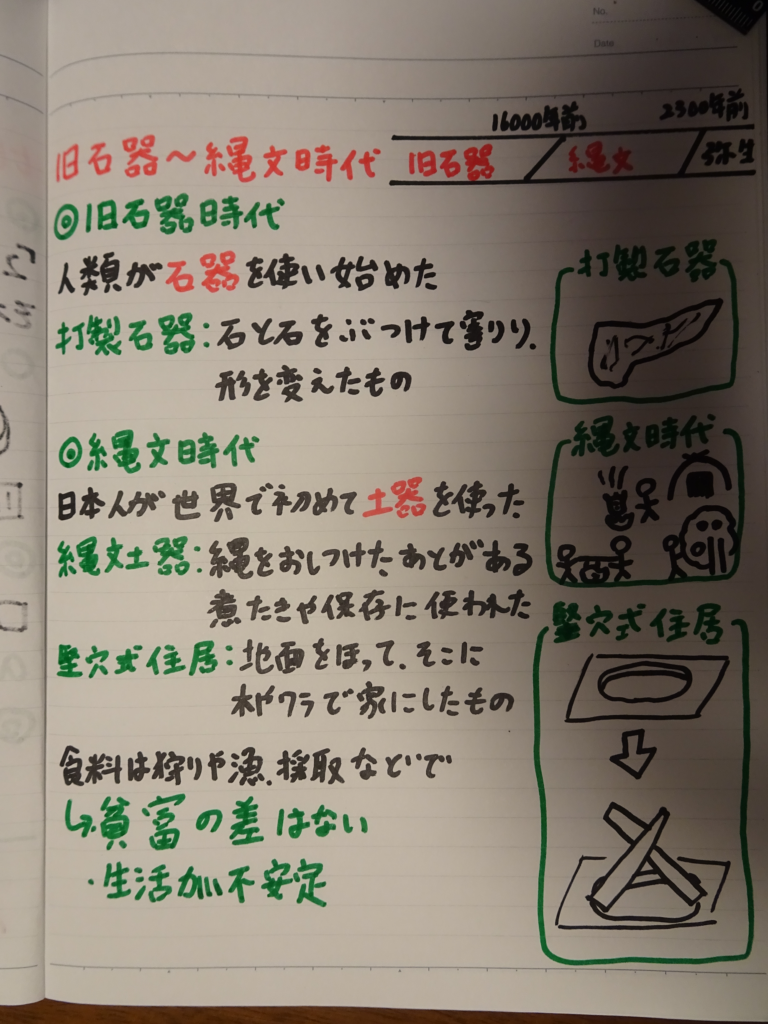 No.
Date
16000年前
2300年前
旧石器～縄文時代
旧石器
縄文
弥生
◎旧石器時代
人類が石器を使い始めた
打製石器
打製石器:石と石をぶつけて割り、
形を変えたもの
◎縄文時代
縄文時代
日本人が世界で初めて土器を使った
縄文土器:縄をおしつけたあとがある
煮たきや保存に使われた
竪穴式住居
竪穴式住居:地面をほって、そこに
木やワラで家にしたもの
食料は狩りや漁、採取などで
↳・貧富の差はない
・生活が不安定